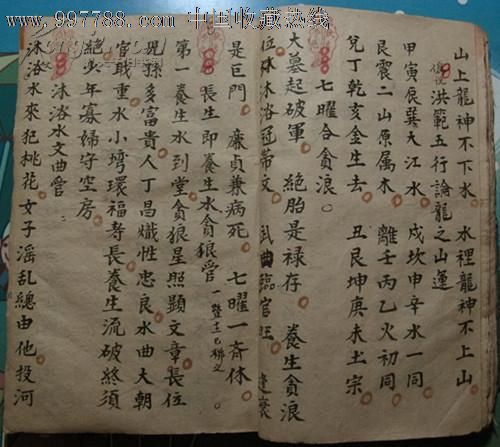 www.997788.com 中国收藏热线
山上龍神不下水 水裡龍神不上山
洪範五行論龍之山運
甲寅辰巽大江水 戌坎申辛水一同
艮震二山原属木 離壬丙乙火初同
兌丁乾亥金生去 丑艮坤庚未土宗
七曜合貪浪
大墓起破軍 絕胎是禄存 養生貪浪
位 沐浴冠帶文 武曲臨官旺 逢衰
是巨門 廉貞兼病死 七曜一斉休
長生即養生水貪狼管
第一養生水到堂貪狼星照顕文章長位
兒孫多富貴人丁昌熾性忠良水曲大朝
官 重水小湾環福寿長養生流破終須
絕少年寡婦守空房
沐浴水文曲管
沐浴水來犯桃花女子淫乱總由他投河